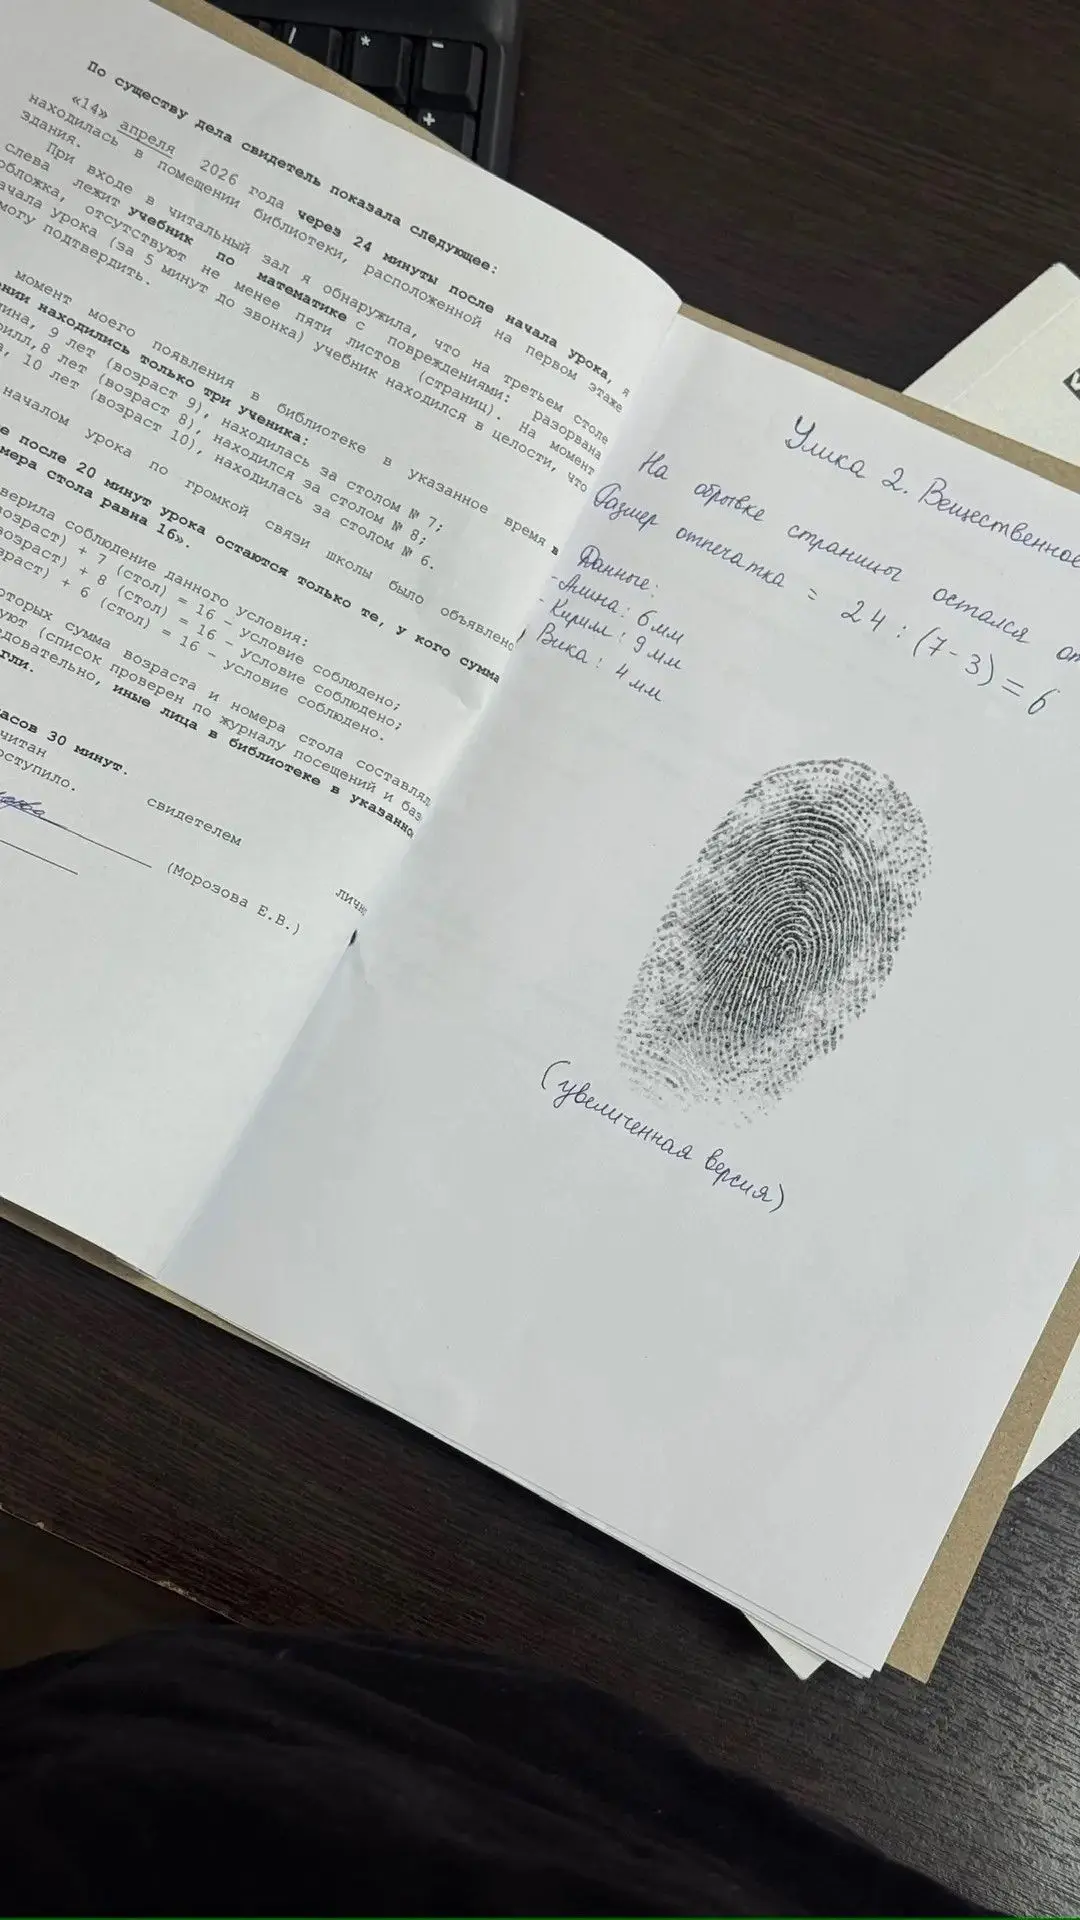 По существу дела свидетель показала следующее:
«14» апреля 2026 года через 24 минуты после начала урока, я
находилась в помещении библиотеки, расположенной на первом этаже
здания.
При входе в читальный зал я обнаружила, что на третьем столе
слева лежит учебник по математике с повреждениями: разорвана
обложка, отсутствуют не менее пяти листов (страниц). На момент
начала урока (за 5 минут до звонка) учебник находился в целости, что
могу подтвердить.
момент моего появления в библиотеке в указанное время в
находились только три ученика:
9 лет (возраст 9), находилась за столом № 7;
8 лет (возраст 8), находился за столом № 8;
10 лет (возраст 10), находилась за столом № 6.
началом урока по громкой связи школы было объявлено
после 20 минут урока остаются только те, у кого сумма
стола равна 16».
соблюдение данного условия:
возраст) + 7 (стол) = 16 – условие соблюдено;
возраст) + 8 (стол) = 16 – условие соблюдено;
+ 6 (стол) = 16 – условие соблюдено.
которых сумма возраста и номера стола
(список проверен по журналу посещений и
иные лица в библиотеке в
30 минут.
свидетелем
(Морозова Е.В.)
Улика 2. Вещественное
На обрывке страницы остался
Размер отпечатка = 24 : (7-3) = 6
Данные:
- Алина: 6 мм
- Кирилл: 9 мм
Вика: 4 мм
(увеличенная версия)
* -
+